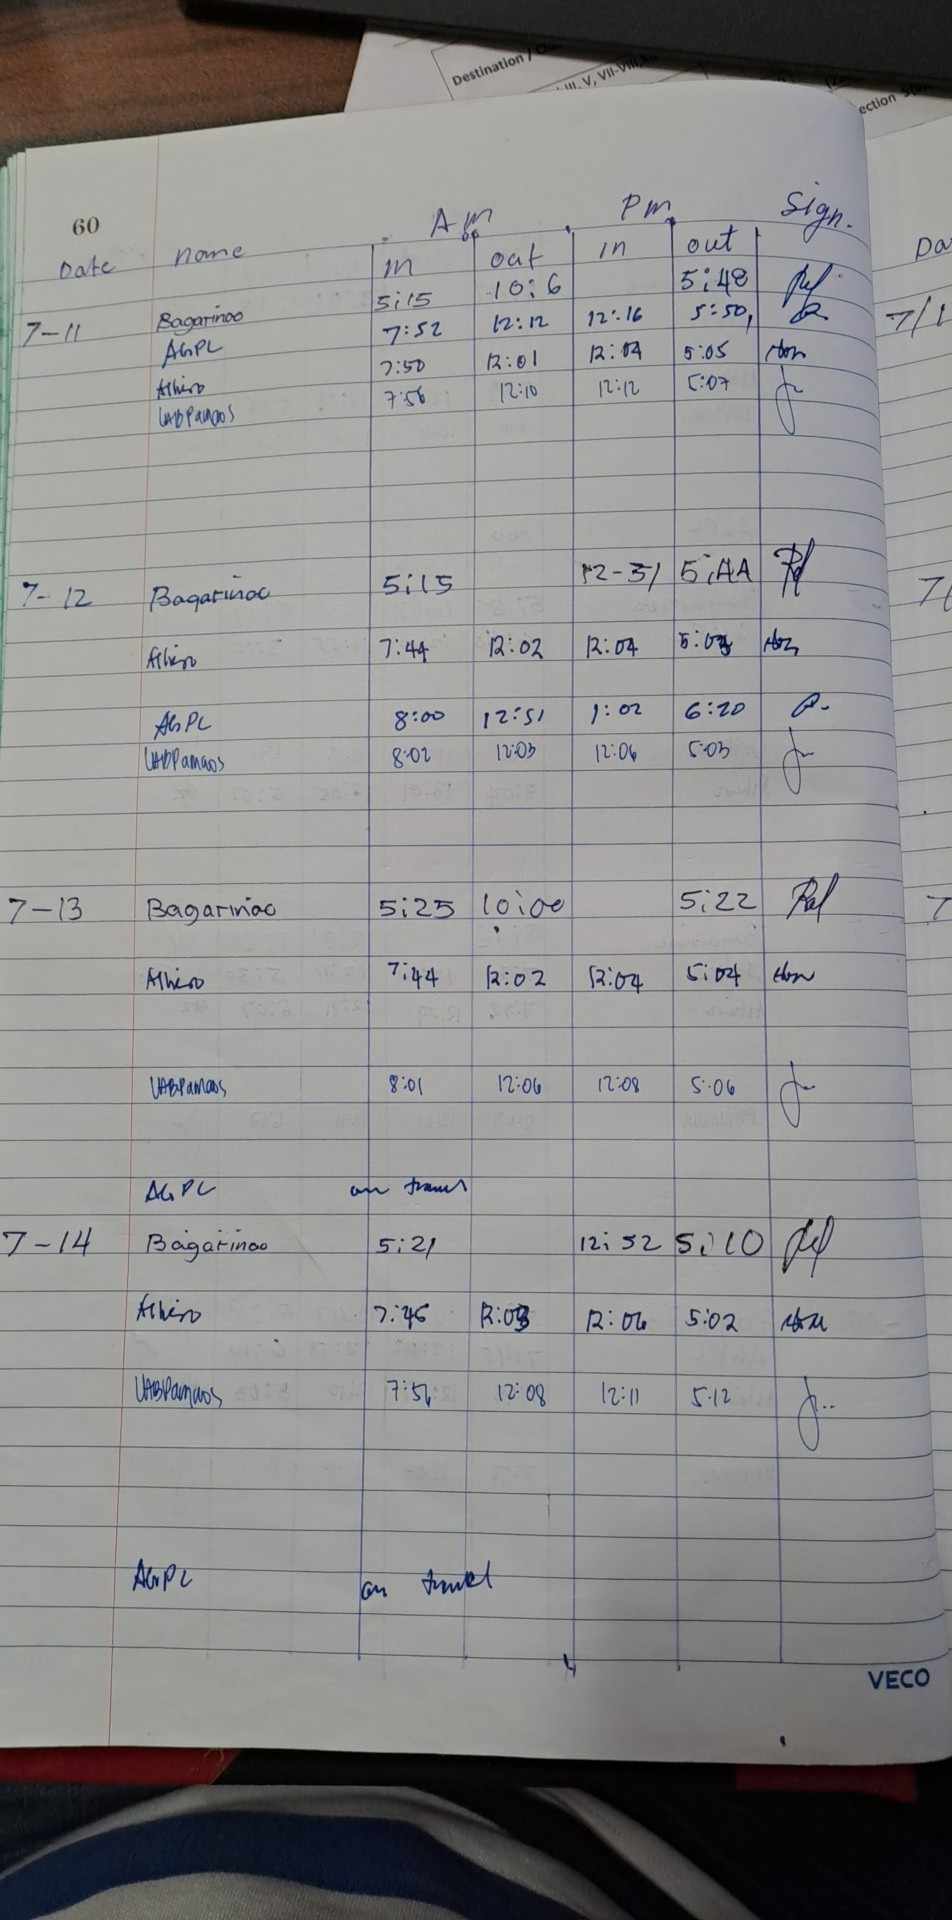 Destination /
III, V, VII-VIII,
ection
60
Am Pm Sign.
Date name in out in out
Da
7-11 Bagarinao 5:15 10:6 5:48
7/1
AGPL 7:52 12:12 12:16 5:50
Albiso 7:50 12:01 12:04 5:05
UABPamaos 7:56 12:10 12:12 5:07
7-12 Bagarinao 5:15 12-31 5:44
Albiso 7:44 12:02 12:04 5:03
AGPL 8:00 12:51 1:02 6:20
UABPamaos 8:02 12:03 12:06 5:03
7-13 Bagarinao 5:25 10:00 5:22
7
Albiso 7:44 12:02 12:04 5:04
UABPamaos 8:01 12:06 12:08 5:06
AGPL on travel
7-14 Bagarinao 5:21 12:52 5:10
Albiso 7:46 12:03 12:06 5:02
UABPamaos 7:56 12:08 12:11 5:12
AGPL on travel
VECO